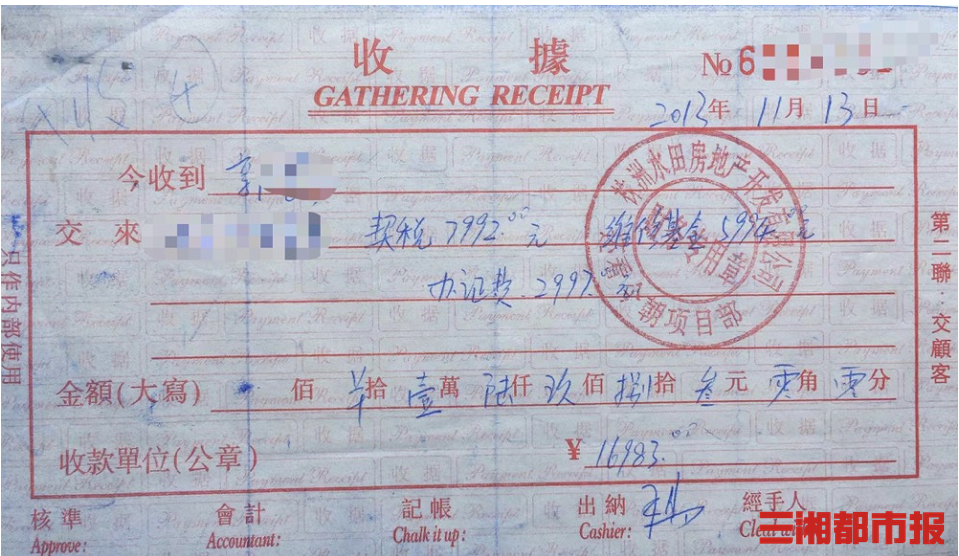 收 據
GATHERING RECEIPT
№6
2013年11月13日
今收到
交 來 契税7992.00元 维修基金5994.00元
办证费.2997.
金額(大寫) 佰 拾壹萬陆仟玖佰捌拾叁元零角零分
收款單位(公章) ¥16983.00
核準 會計 記帳 出納 經手人
Approve: Accountant: Chalk it up: Cashier:
只作内部使用
第二聯：交顧客
株洲水田房地产开发有限公司
专用章
朝项目部
三湘都市报